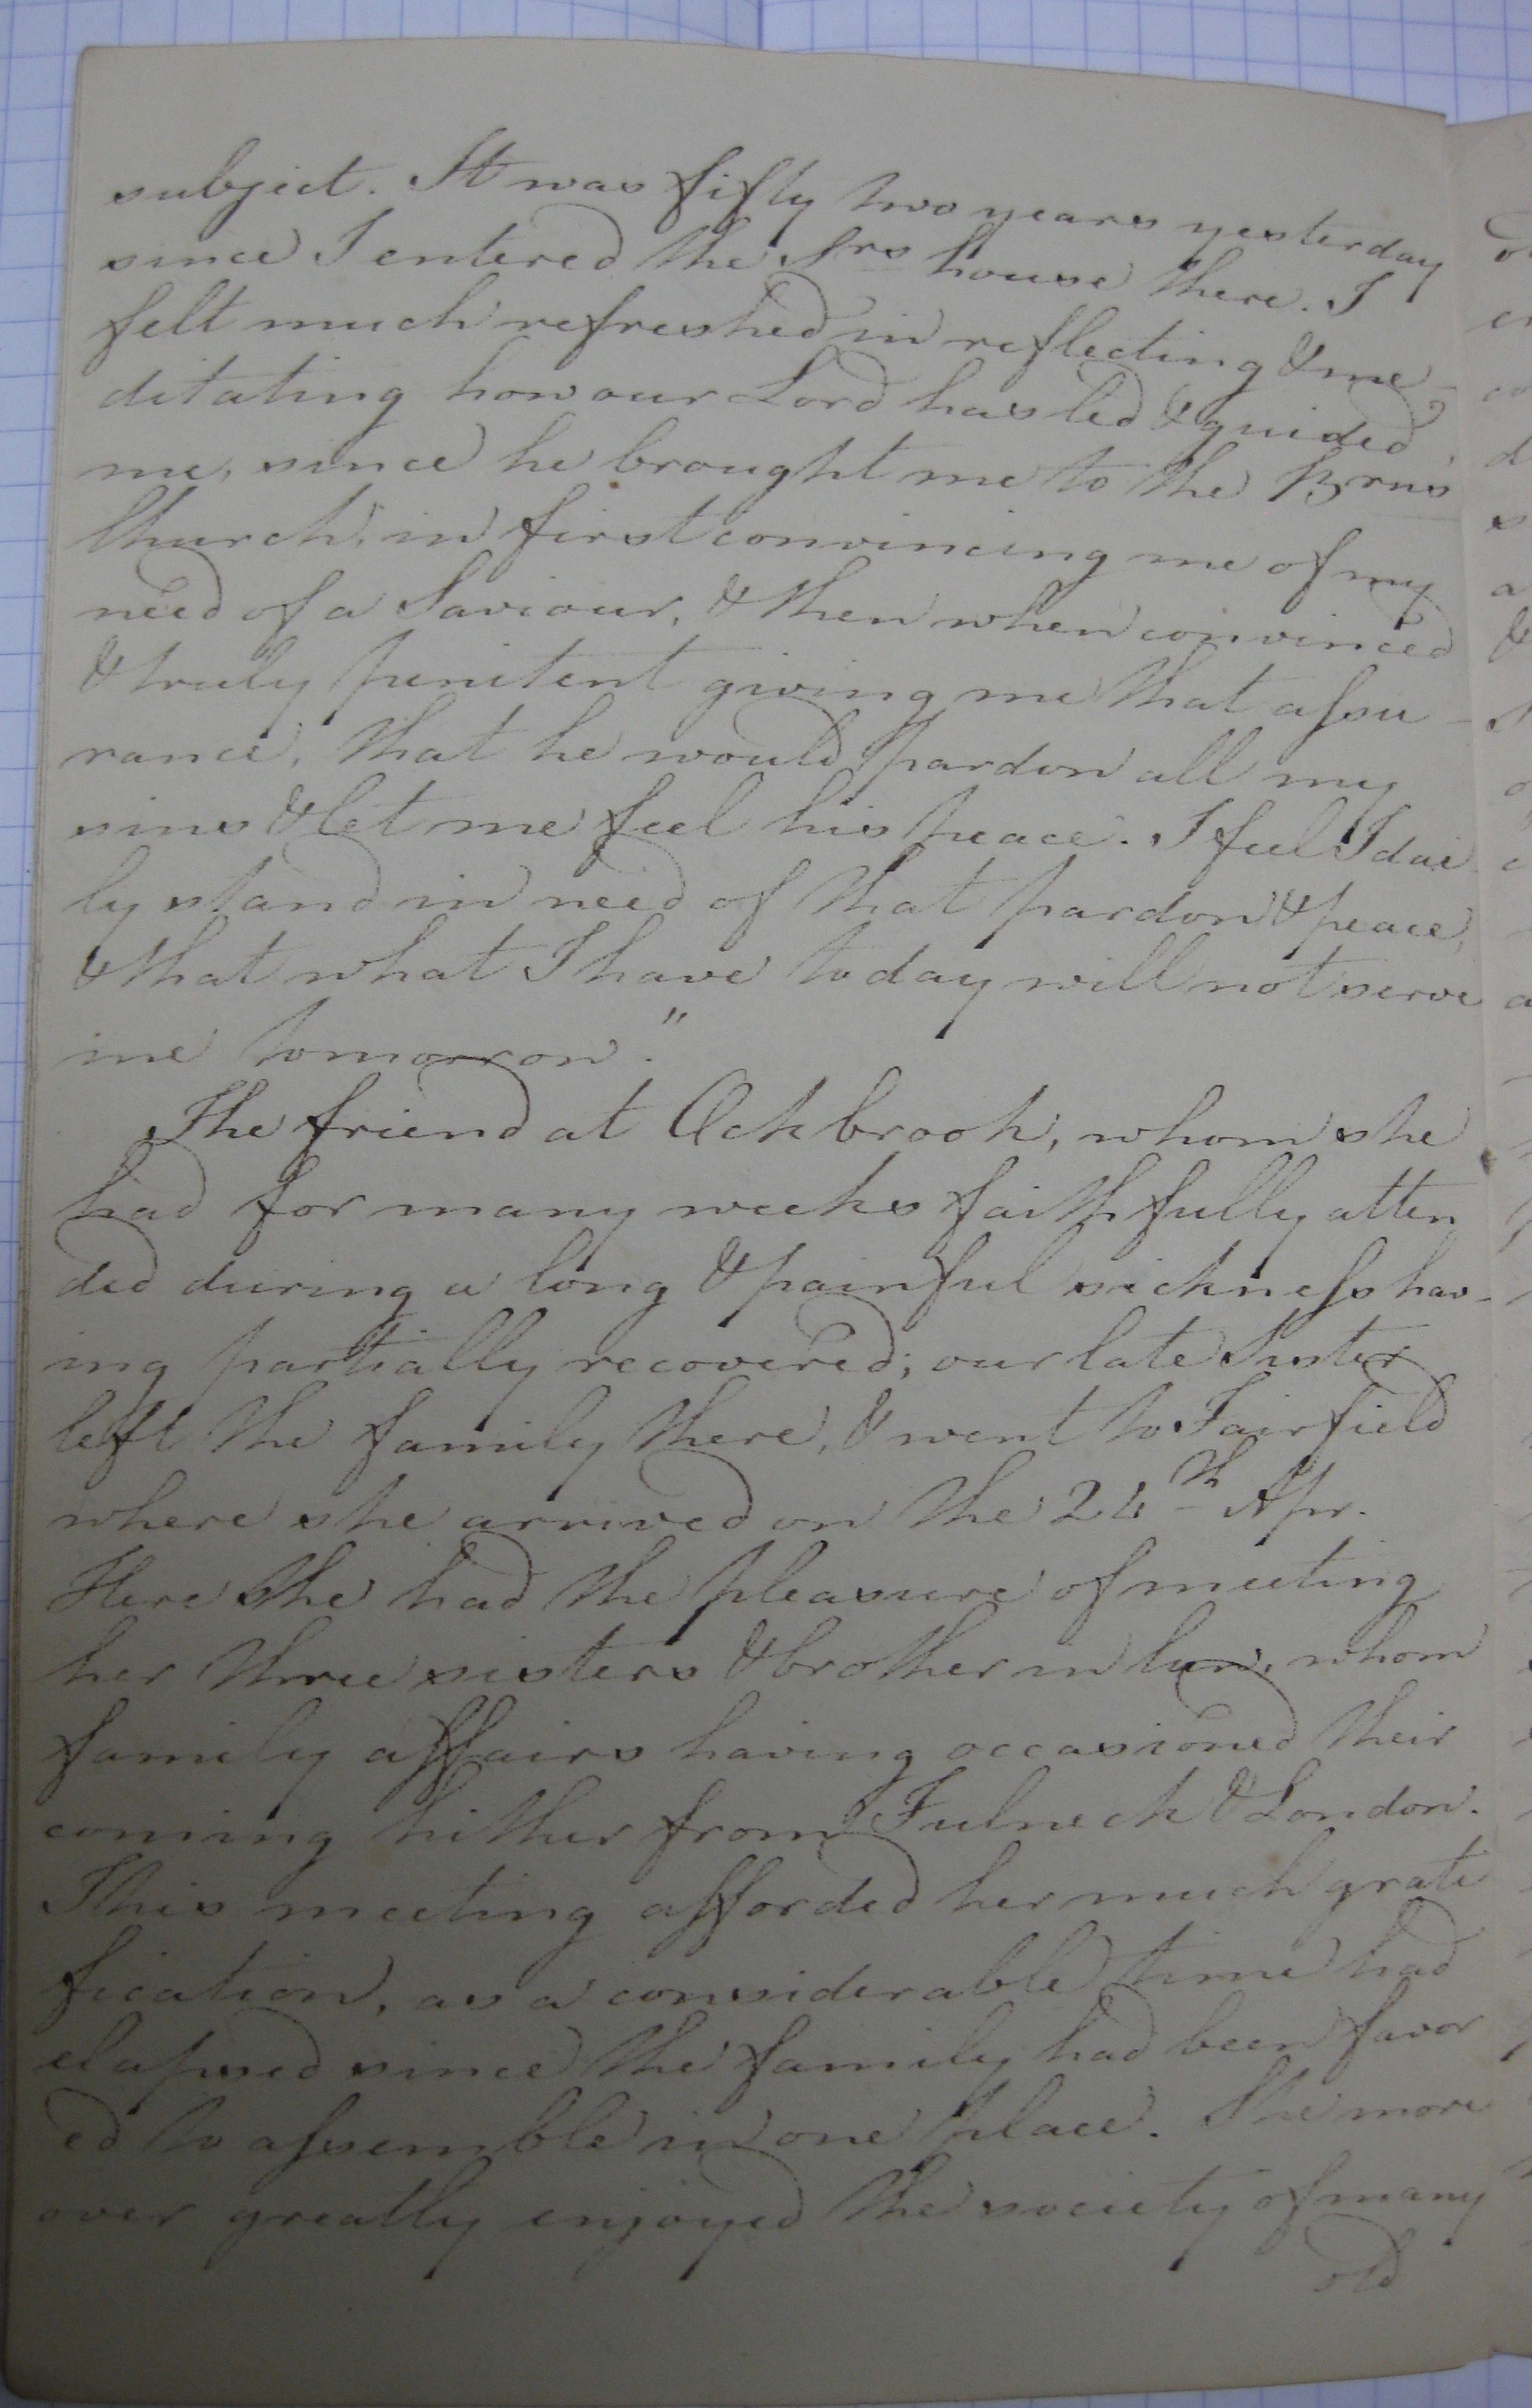 subject. It was fifty two years yesterday
since I entered the Srs house there. I
felt much refreshed in reflecting & me-
ditating how our Lord has led & guided
me, since he brought me to the Brn's
Church, in first convincing me of my
need of a Saviour, & then when convinced
& truly penitent giving me that assu-
rance, that he would pardon all my
sins & let me feel his peace. I feel I dai-
ly stand in need of that pardon & peace,
& that what I have to day will not serve
me tomorrow."
The friend at Ockbrook, whom she
had for many weeks faithfully atten
ded during a long & painful sickness hav-
ing partially recovered; our late Sister
left the family there, & went to Fairfield
where she arrived on the 24th Apr.
Here she had the pleasure of meeting
her three sisters & brother in law, whom
family affairs having occasioned their
coming hither from Fulneck & London.
This meeting afforded her much grati
fication, as a considerable time had
elapsed since the family had been favor
ed to assemble in one place. She more
over greatly enjoyed the society of many
old